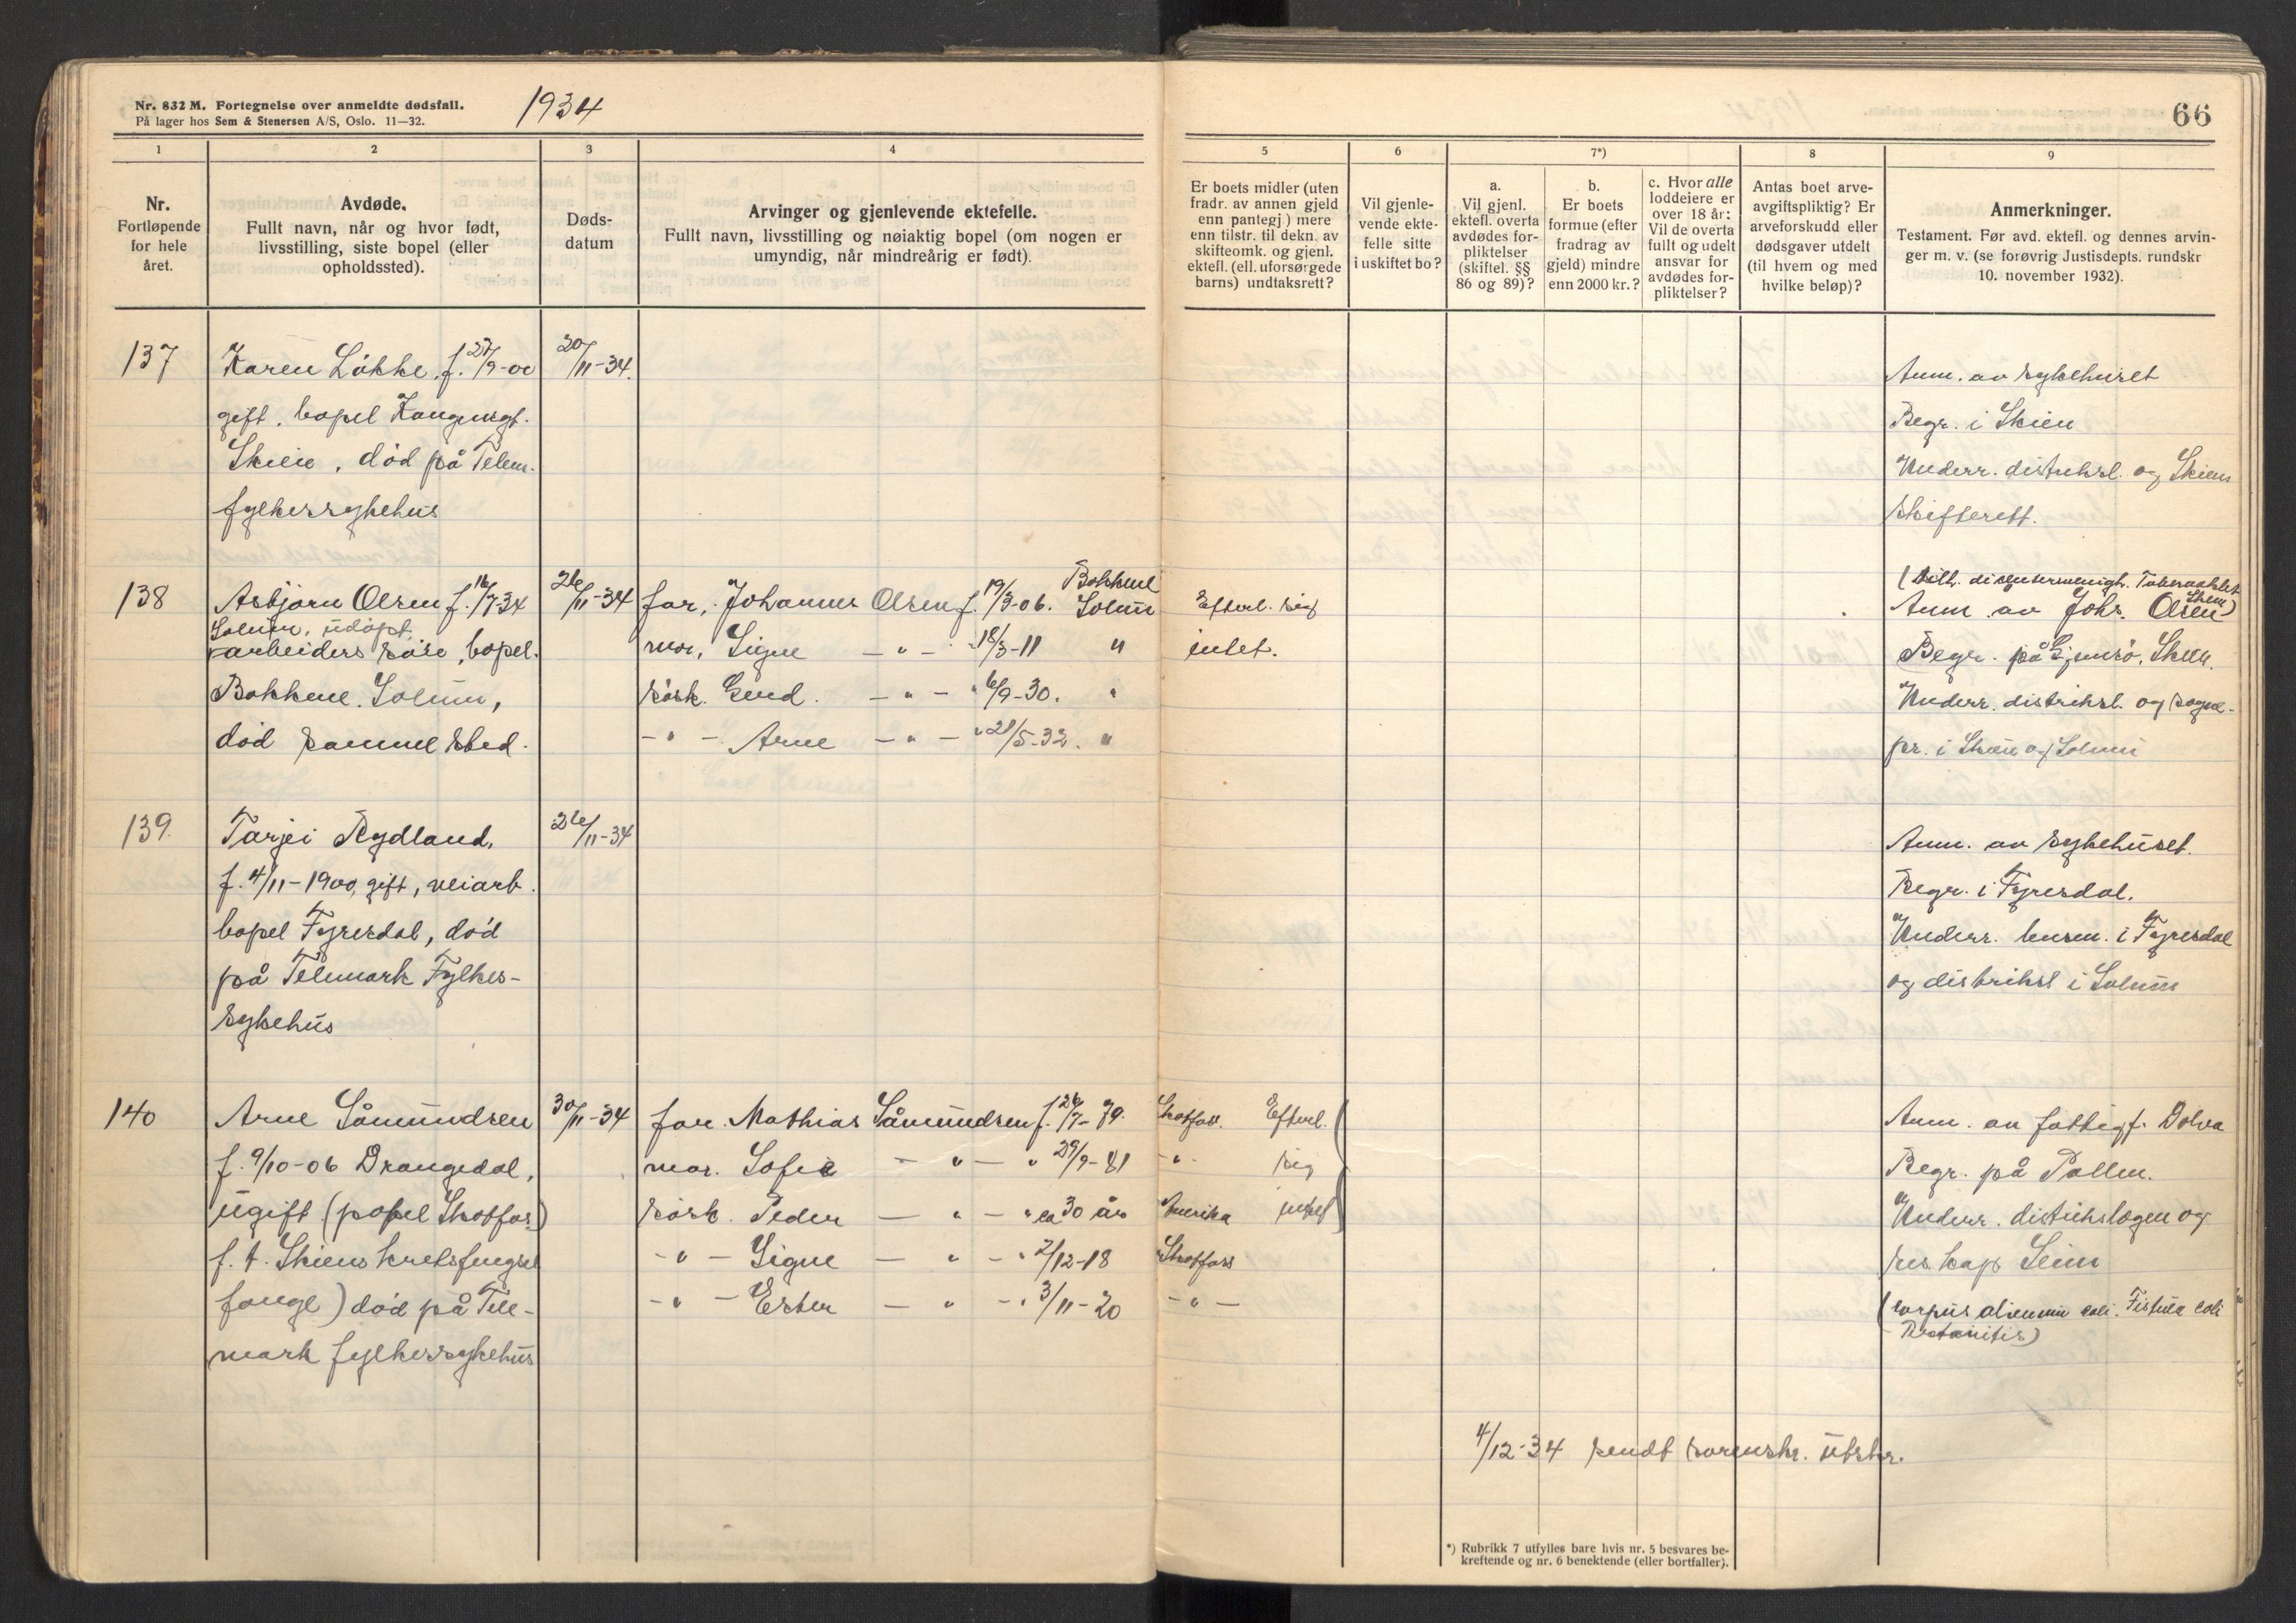 Nr. 832 M. Fortegnelse over anmeldte dødsfall.
På lager hos Sem & Stenersen A/S, Oslo. 11—32.
1934
66
1 2 3 4 5 6 7*) 8 9
Nr.
Fortløpende
for hele
året.
Avdøde.
Fullt navn, når og hvor født,
livsstilling, siste bopel (eller
opholdssted).
Døds-
datum
Arvinger og gjenlevende ektefelle.
Fullt navn, livsstilling og nøiaktig bopel (om nogen er
umyndig, når mindreårig er født).
Er boets midler (uten
fradr. av annen gjeld
enn pantegj.) mere
enn tilstr. til dekn. av
skifteomk. og gjenl.
ektefl. (ell. uforsørgede
barns) undtaksrett?
Vil gjenle-
vende ekte-
felle sitte
i uskiftet bo?
a.
Vil gjenl.
ektefl. overta
avdødes for-
pliktelser
(skiftel. §§
86 og 89)?
b.
Er boets
formue (efter
fradrag av
gjeld) mindre
enn 2000 kr.?
c. Hvor alle
loddeiere er
over 18 år:
Vil de overta
fullt og udelt
ansvar for
avdødes for-
pliktelser?
Antas boet arve-
avgiftspliktig? Er
arveforskudd eller
dødsgaver utdelt
(til hvem og med
hvilke beløp)?
Anmerkninger.
Testament. Før avd. ektefl. og dennes arvin-
ger m. v. (se forøvrig Justisdepts. rundskr
10. november 1932).
137
Karen Løkke, f. 27/9-00
gift, bopel Kongensgt.
Skien, død på Telem.
fylkessykehus
20/11-34.
Anm. av sykehuset
Begr. i Skien
Underr. distriksl. og Skiens
skifterett.
138
Asbjørn Olsen f. 16/7-34
Solum, udøpt
arbeiders søn, bopel.
Bakkene, Solum,
død samme sted.
26/11-34
far, Johannes Olsen f. 19/3-06. Bakkene Solum
mor, Signe — " — " 18/3-11 "
søsk. Gerd. — " — " 6/9-30. "
— " — Arne — " — " 21/5-32. "
Efterl. sig
intet.
Skien)
Anm av Johs. Olsen
Begr. på Gjemsø, Skien.
Underr. distriksl. og sogne-
pr. i Skien og Solum
139.
Tarjei Rydland,
f. 4/11-1900, gift, veiarb.
bopel Fyresdal, død
på Telemark Fylkes-
sykehus
26/11-34
Anm. av sykehuset.
Begr. i Fyresdal.
Underr. lensm. i Fyresdal
og distriksl i Solum
140
Arne Såmundsen
f. 9/10-06 Drangedal,
ugift (bopel Skotfoss)
f. t. Skiens kretsfengsel
fange) død på Tele-
mark fylkessykehus
30/11-34
far. Mathias Såmundsen f. 26/7-79. Skotfoss.
mor. Sofie — " — " 29/9-81 — " —
søsk. Peder — " — " ca 30 år Amerika
— " — Signe — " — " 2/12-18 Skotfoss
— " — Ester — " — " 3/11-20 — " —
Efterl.
sig
intet
Anm. av fattigf. Dolva
Begr. på Pollen.
Underr. distrikslægen og
res kap Seim
(corpus alienum coli. Fistula coli
4/12-34 sendt sorenskr. utskr.
*) Rubrikk 7 utfylles bare hvis nr. 5 besvares be-
kreftende og nr. 6 benektende (eller bortfaller).